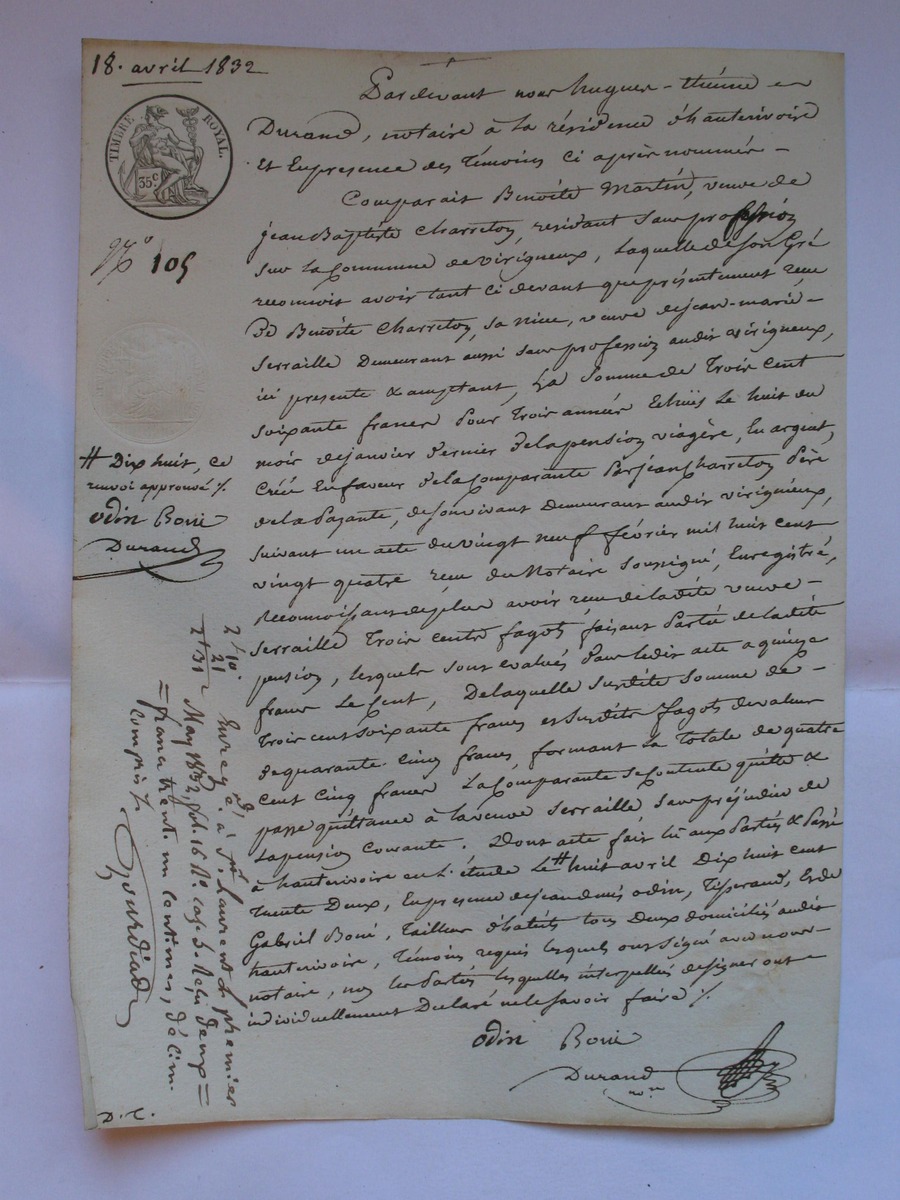 18. avril 1832
TIMBRE ROYAL.
35 c
N.º 105
Pardevant nous hugues-étienne
Durand, notaire à la résidence d'hauterivoire
et En présence des Témoins ci après nommés -
Comparait Benoîte Martin, veuve de
jean Baptiste Charreton, résidant sans profession
sur la Commune de virigneux, Laquelle de son Gré
reconnoit avoir tant ci devant que présentement reçu
De Benoîte Charreton, sa niece, veuve de jean-marie -
Serraille Demeurant aussi sans profession audit virigneux,
ici présente & acceptant, La Somme de Trois cent
soixante francs pour Trois années Echües Le huit du
mois de janvier Dernier De la pension viagère, En argent,
Créée En faveur de la Comparante Par jean Charreton Père
de la Payante, de son vivant Demeurant audit virigneux,
suivant un acte du vingt neuf février mil huit cent
vingt quatre reçu du Notaire soussigné, Enregistré,
Reconnoissant de plus avoir reçu de ladite veuve -
Serraille Trois cents fagots, faisant Partie de ladite
pension, lesquels sont evalués Par ledit acte a quinze
francs Le Cent, De laquelle susdite Somme de -
Trois cent soixante francs et susdits fagots de valeur
de quarante cinq francs, formant La Totale de quatre
cent cinq francs La Comparante se contente quitte &
passe quittance à la veuve Serraille, sans préjudice de
la pension Courante. Dont acte fait lu aux Parties & Passé
à hauterivoire en L'étude Le # huit avril Dix huit cent
Trente Deux, En présence de jean denis odin, Tisserand, Et de
Gabriel Boné, Tailleur d'habits tous Deux domiciliés audit
hauterivoire, Témoins requis lesquels ont signé avec nous -
notaire, non les Parties lesquelles interpellées de signer ont -
individuellement Déclaré ne le savoir faire ./.
odin Boné
Durand
nre
# Dix huit, ce
renvoi approuvé ./.
odin Boné
Durand
2 f 10.
21
2 f 31
Enreg.é à St. Laurent le premier
May 1832, fol. 16 Rº cas. 5. Reçu deux =
= francs trente un centimes, décime
compris ./.
D. C.